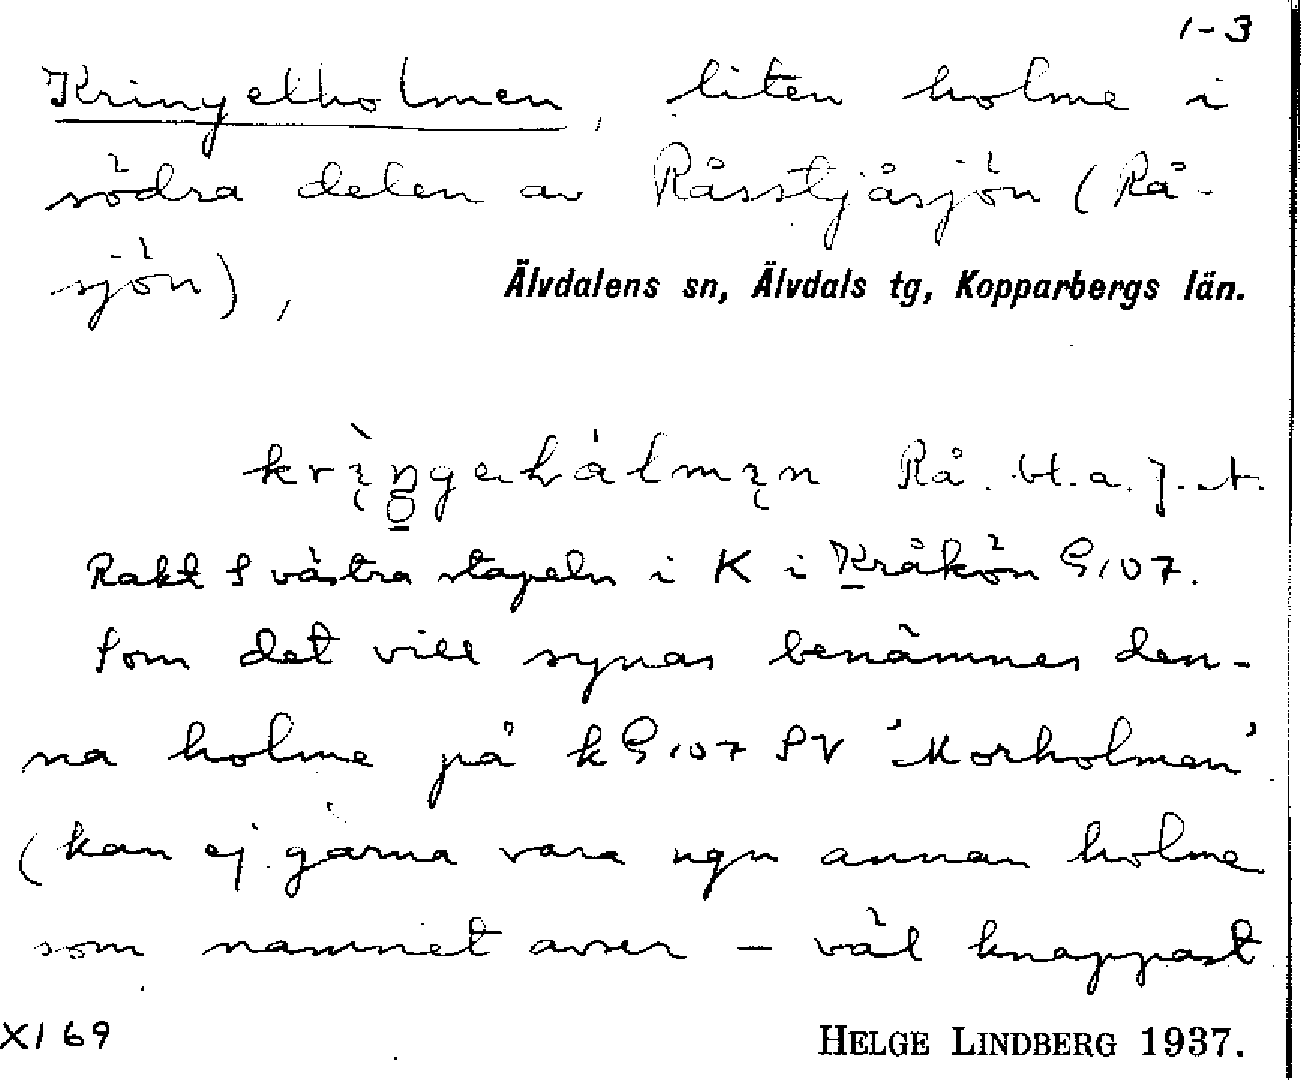 1-3
Kringelholmen, liten holme i
södra delen av Råsstjåsjön (Rå-
sjön),
Älvdalens sn, Älvdals tg, Kopparbergs län.
Rå. bl.a. J.A.
Rakt S västra stapeln i K i Kråkön G107.
Som det vill synas benämnes den-
na holme på kG107 SV 'Morholmen'
(kan ej gärna vara ngn annan holme
som namnet avser – väl knappast
XI 69
HELGE LINDBERG 1937.